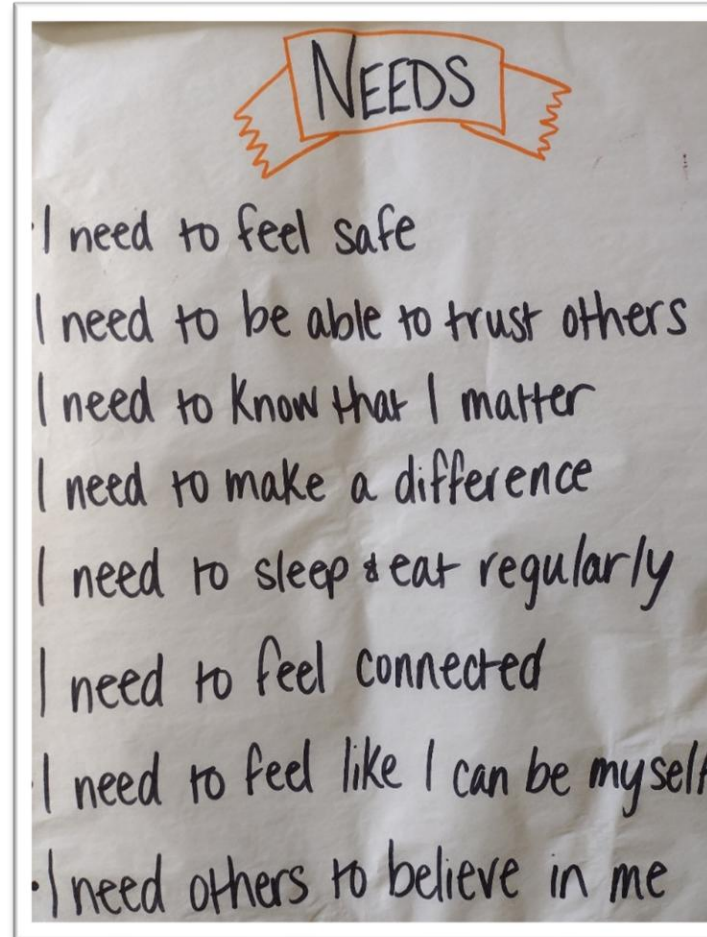 NEEDS
·I need to feel safe
I need to be able to trust others
I need to know that I matter
I need to make a difference
I need to sleep & eat regularly
I need to feel connected
·I need to feel like I can be myself
·I need others to believe in me